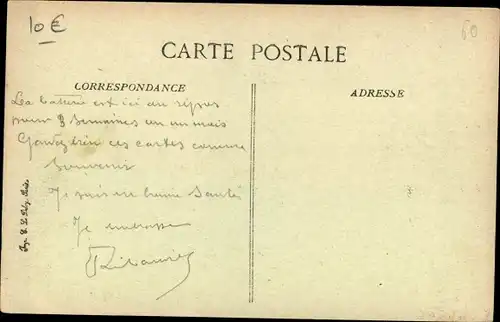 10 €
60
CARTE POSTALE
CORRESPONDANCE
ADRESSE
La batterie est ici au repos
pour 3 semaines ou un mois
ces cartes comme
Souvenir
Je suis en bonne Santé
Je embrasse